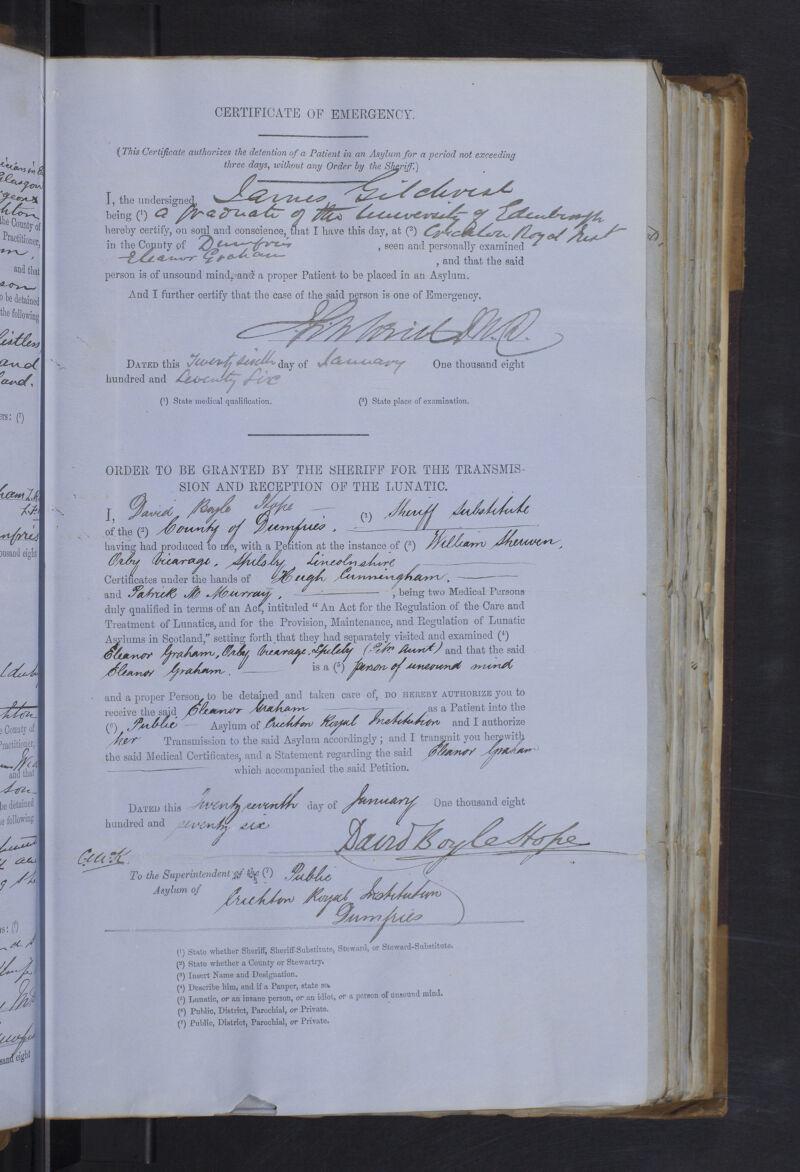 CERTIFICATE OF EMERGENCY.
(This Certificate authorizes the detention of a Patient in an Asylum for a period not exceeding
three days, without any Order by the Sheriff.)
I, the undersigned, James Gilchrist
being (¹) a Graduate of the University of Edenburgh
hereby certify, on soul and conscience, that I have this day, at (²) Crichton Royal Inst
in the County of Dumfries, seen and personally examined
Eleanor Graham, and that the said
person is of unsound mind, and a proper Patient to be placed in an Asylum.
And I further certify that the case of the said person is one of Emergency.
DATED this Twenty sixth day of January One thousand eight
hundred and Seventy Six
(¹) State medical qualification. (²) State place of examination.
ORDER TO BE GRANTED BY THE SHERIFF FOR THE TRANSMIS-
SION AND RECEPTION OF THE LUNATIC.
I, David Boyle Hope (¹) Sheriff Substitute
of the (²) County of Dumfries.
having had produced to me, with a Petition at the instance of (³) William Sherwen,
Orby Vicarage, Spilsby, Lincolnshire
Certificates under the hands of Hugh Cunningham,
and Patrick M Murray, being two Medical Persons
duly qualified in terms of an Act, intituled "An Act for the Regulation of the Care and
Treatment of Lunatics, and for the Provision, Maintenance, and Regulation of Lunatic
Asylums in Scotland," setting forth that they had separately visited and examined (⁴)
Eleanor Graham, Orby Vicarage, Spilsby aunt) and that the said
Eleanor Graham. is a (⁵) person of unsound mind
and a proper Person to be detained and taken care of, DO HEREBY AUTHORIZE you to
receive the said Eleanor Graham as a Patient into the
(⁶) Public Asylum of Crichton Royal Institution and I authorize
her Transmission to the said Asylum accordingly; and I transmit you herewith
the said Medical Certificates, and a Statement regarding the said Eleanor Graham
which accompanied the said Petition.
DATED this Twenty seventh day of January One thousand eight
hundred and seventy six
David Boyle Hope
To the Superintendent of the (⁷) Public
Asylum of Crichton Royal Institution
Dumfries
(¹) State whether Sheriff, Sheriff-Substitute, Steward, or Steward-Substitute.
(²) State whether a County or Stewartry.
(³) Insert Name and Designation.
(⁴) Describe him, and if a Pauper, state so.
(⁵) Lunatic, or an insane person, or an idiot, or a person of unsound mind.
(⁶) Public, District, Parochial, or Private.
(⁷) Public, District, Parochial, or Private.